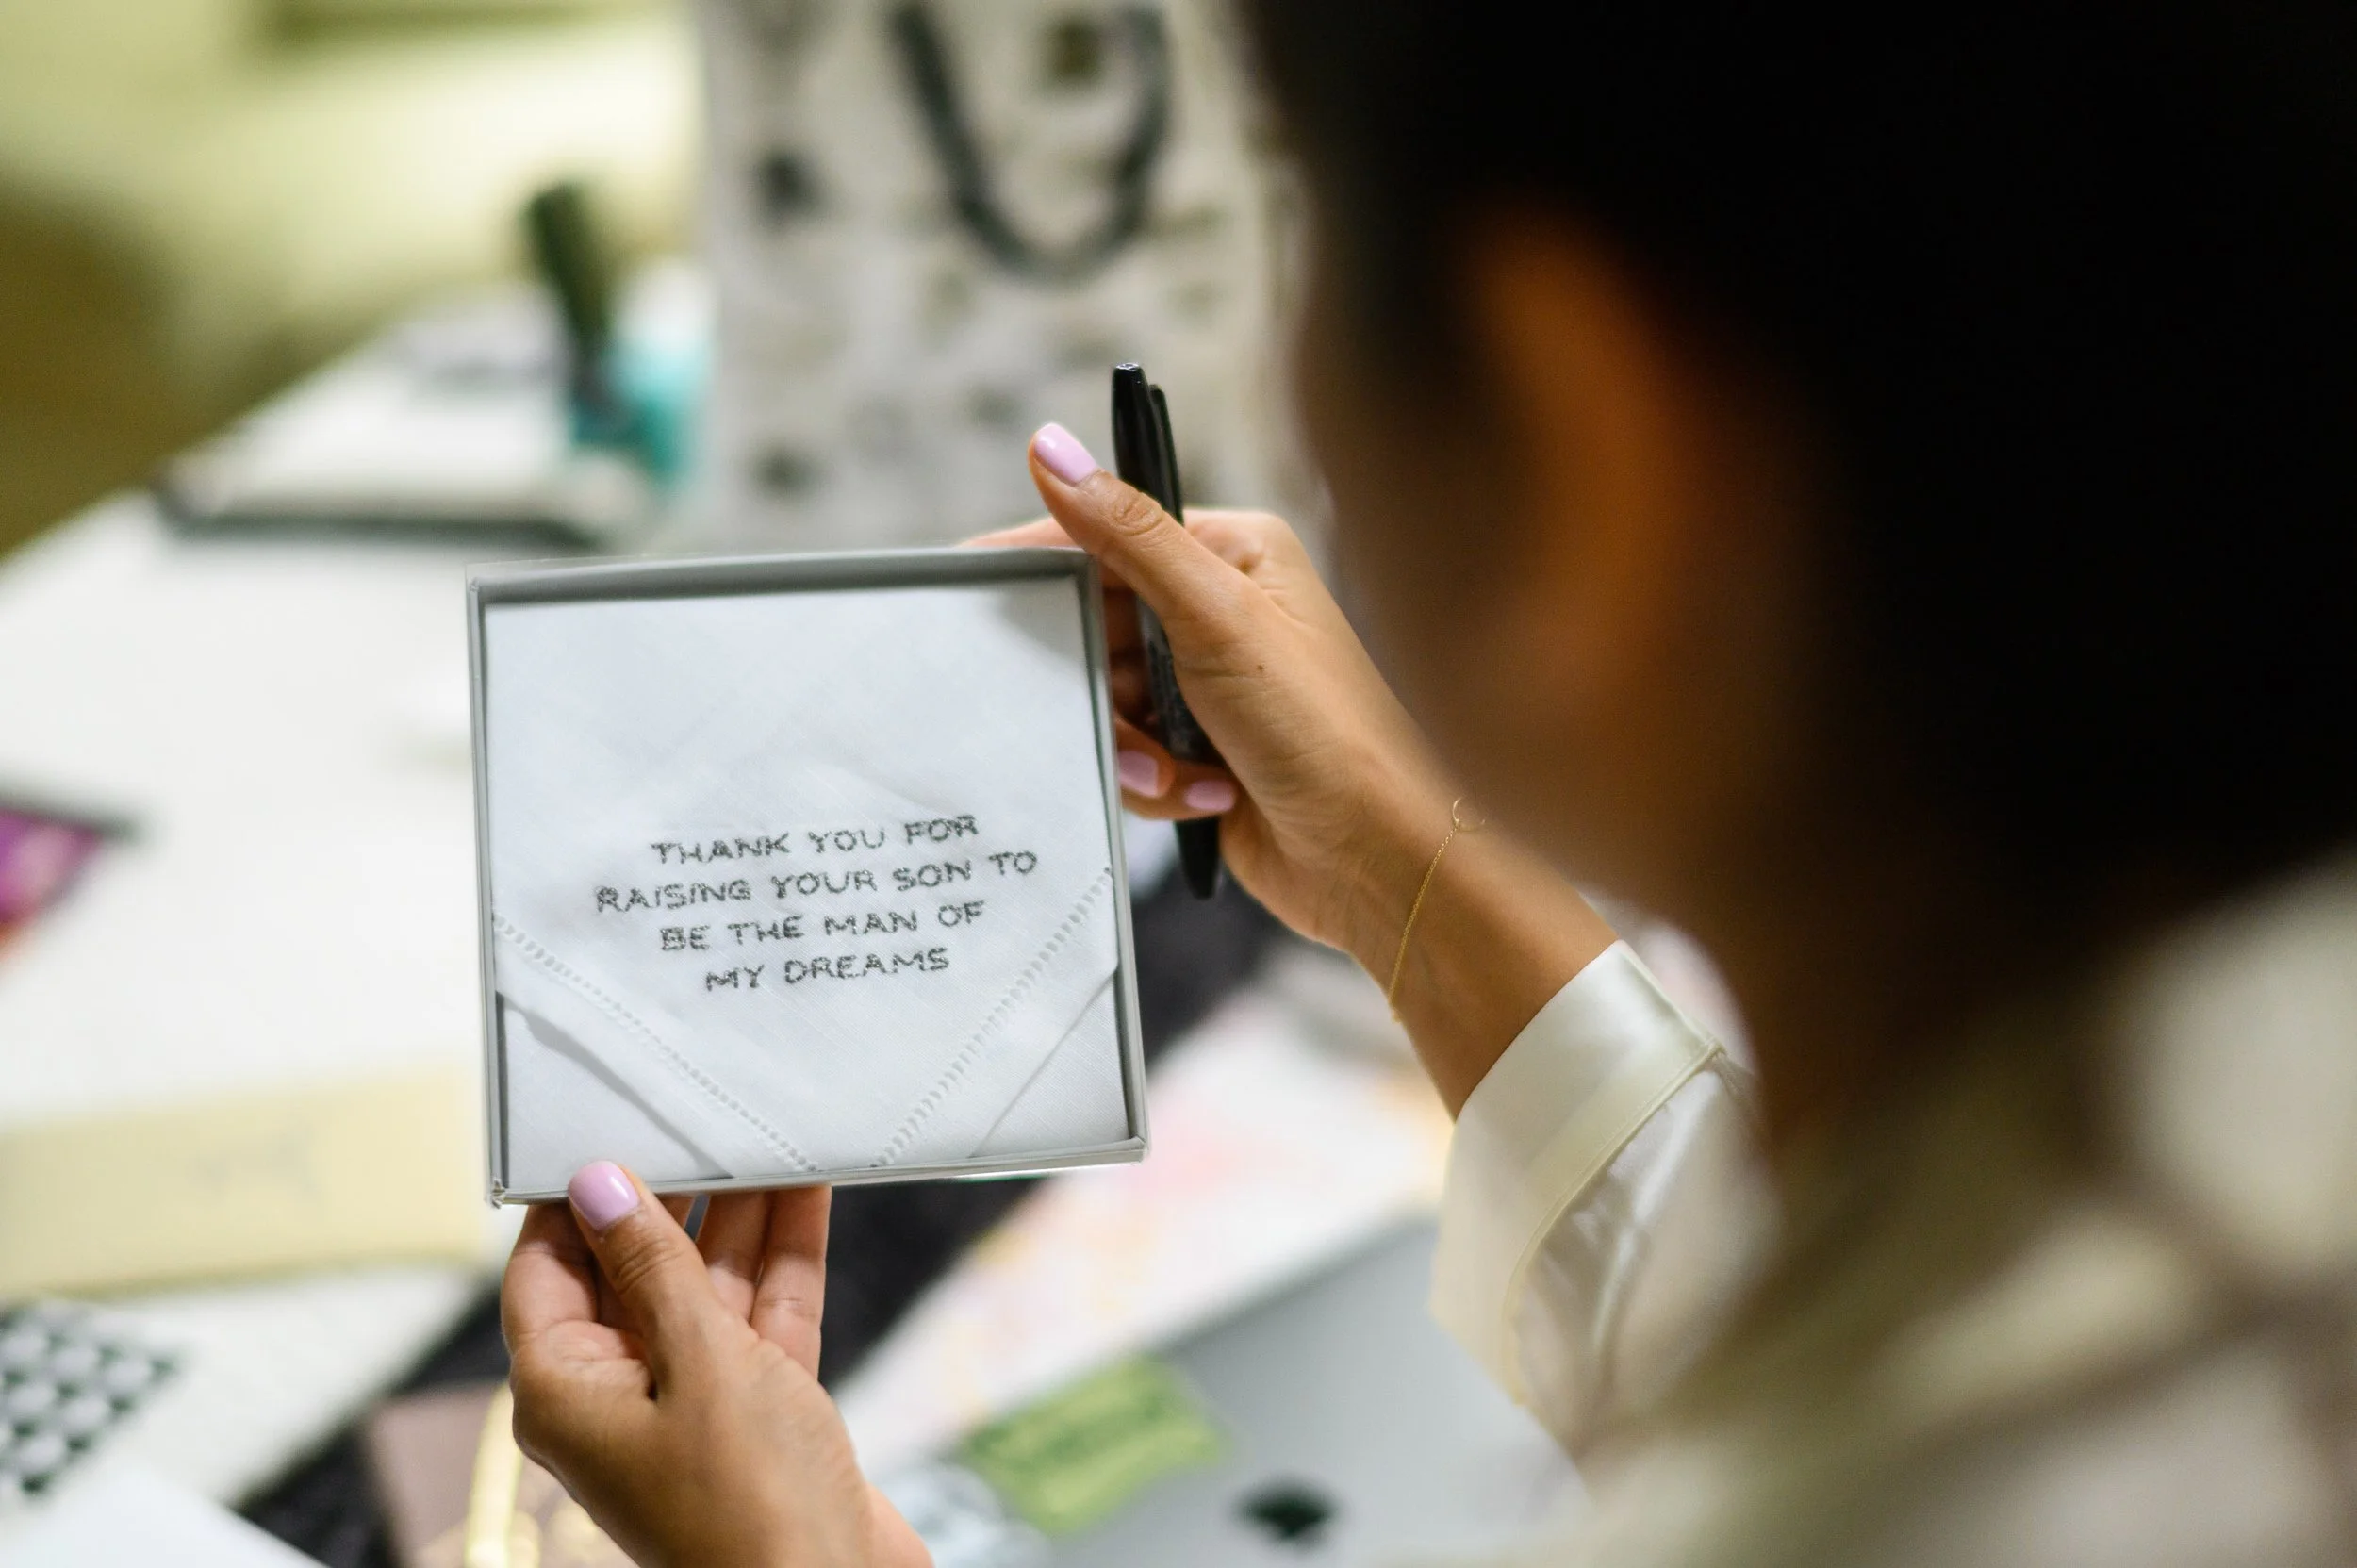 THANK YOU FOR
RAISING YOUR SON TO
BE THE MAN OF
MY DREAMS